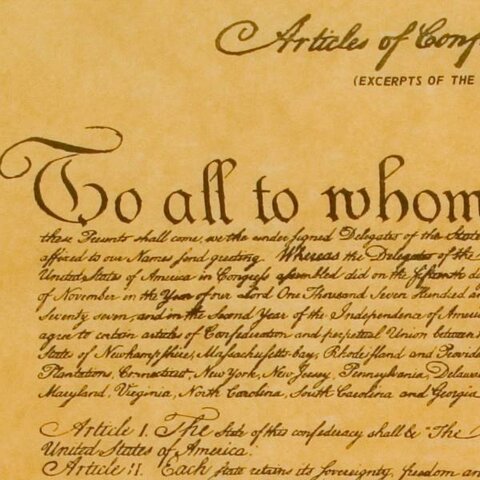 Articles of Conf
(EXCERPTS OF THE
To all to whom
these Presents shall come, we the under signed Delegates of the State
affixed to our Names send greeting. Whereas the Delegates of the
United States of America in Congress assembled did on the fifteenth d
of November in the Year of our Lord One Thousand Seven Hundred an
Seventy seven, and in the Second Year of the Independence of Americ
agree to certain articles of Confederation and perpetual Union between
States of Newhampshire, Massachusetts-bay, Rhodeisland and Provide
Plantations, Connecticut, New York, New Jersey, Pennsylvania, Delawa
Maryland, Virginia, North Carolina, South Carolina and Georgia
Article I. The Stile of this confederacy shall be "The
United States of America."
Article II. Each state retains its sovereignty, freedom an